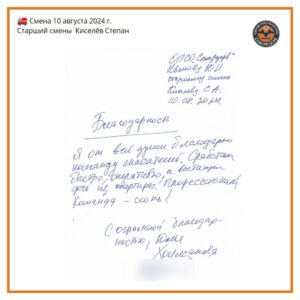 Смена 10 августа 2024 г.
Старший смены Киселёв Степан
ОПСО
старшему смены
Киселёву С.А.
10.08.2024
Благодарность
Я от всей души благодарю
команду спасателей. Сработали
быстро, оперативно, и вытащили
из квартиры! Профессионалы
команда - огонь!
С огромной благодар-
ностью, Юлия